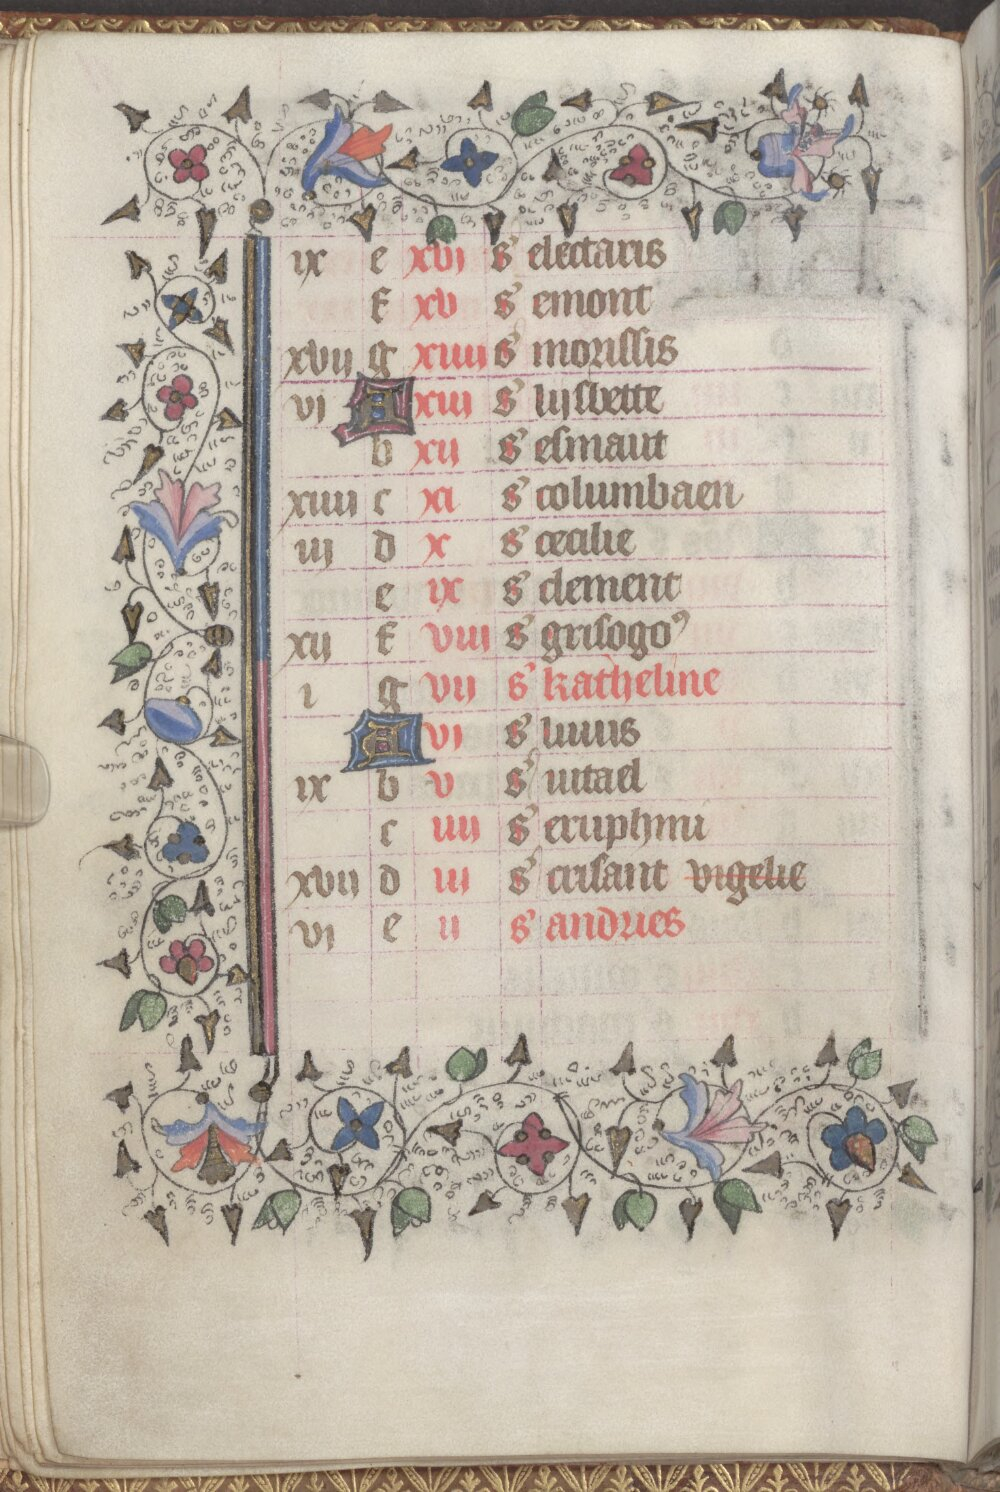 ix e xvi s' electaris
f xv s' emont
xvij g xiiii s' morissis
vj A xiii s' lijsbette
b xii s' esmaut
xiiij c xi s' columbaen
iij d x s' cecilie
e ix s' clement
xij f viii s' grisogo⁹
i g vii s' katheline
A vi s' linus
ix b v s' uitael
c iiii s' eruphini
xvij d iii s' crisant vigelie
vj e ii s' andries